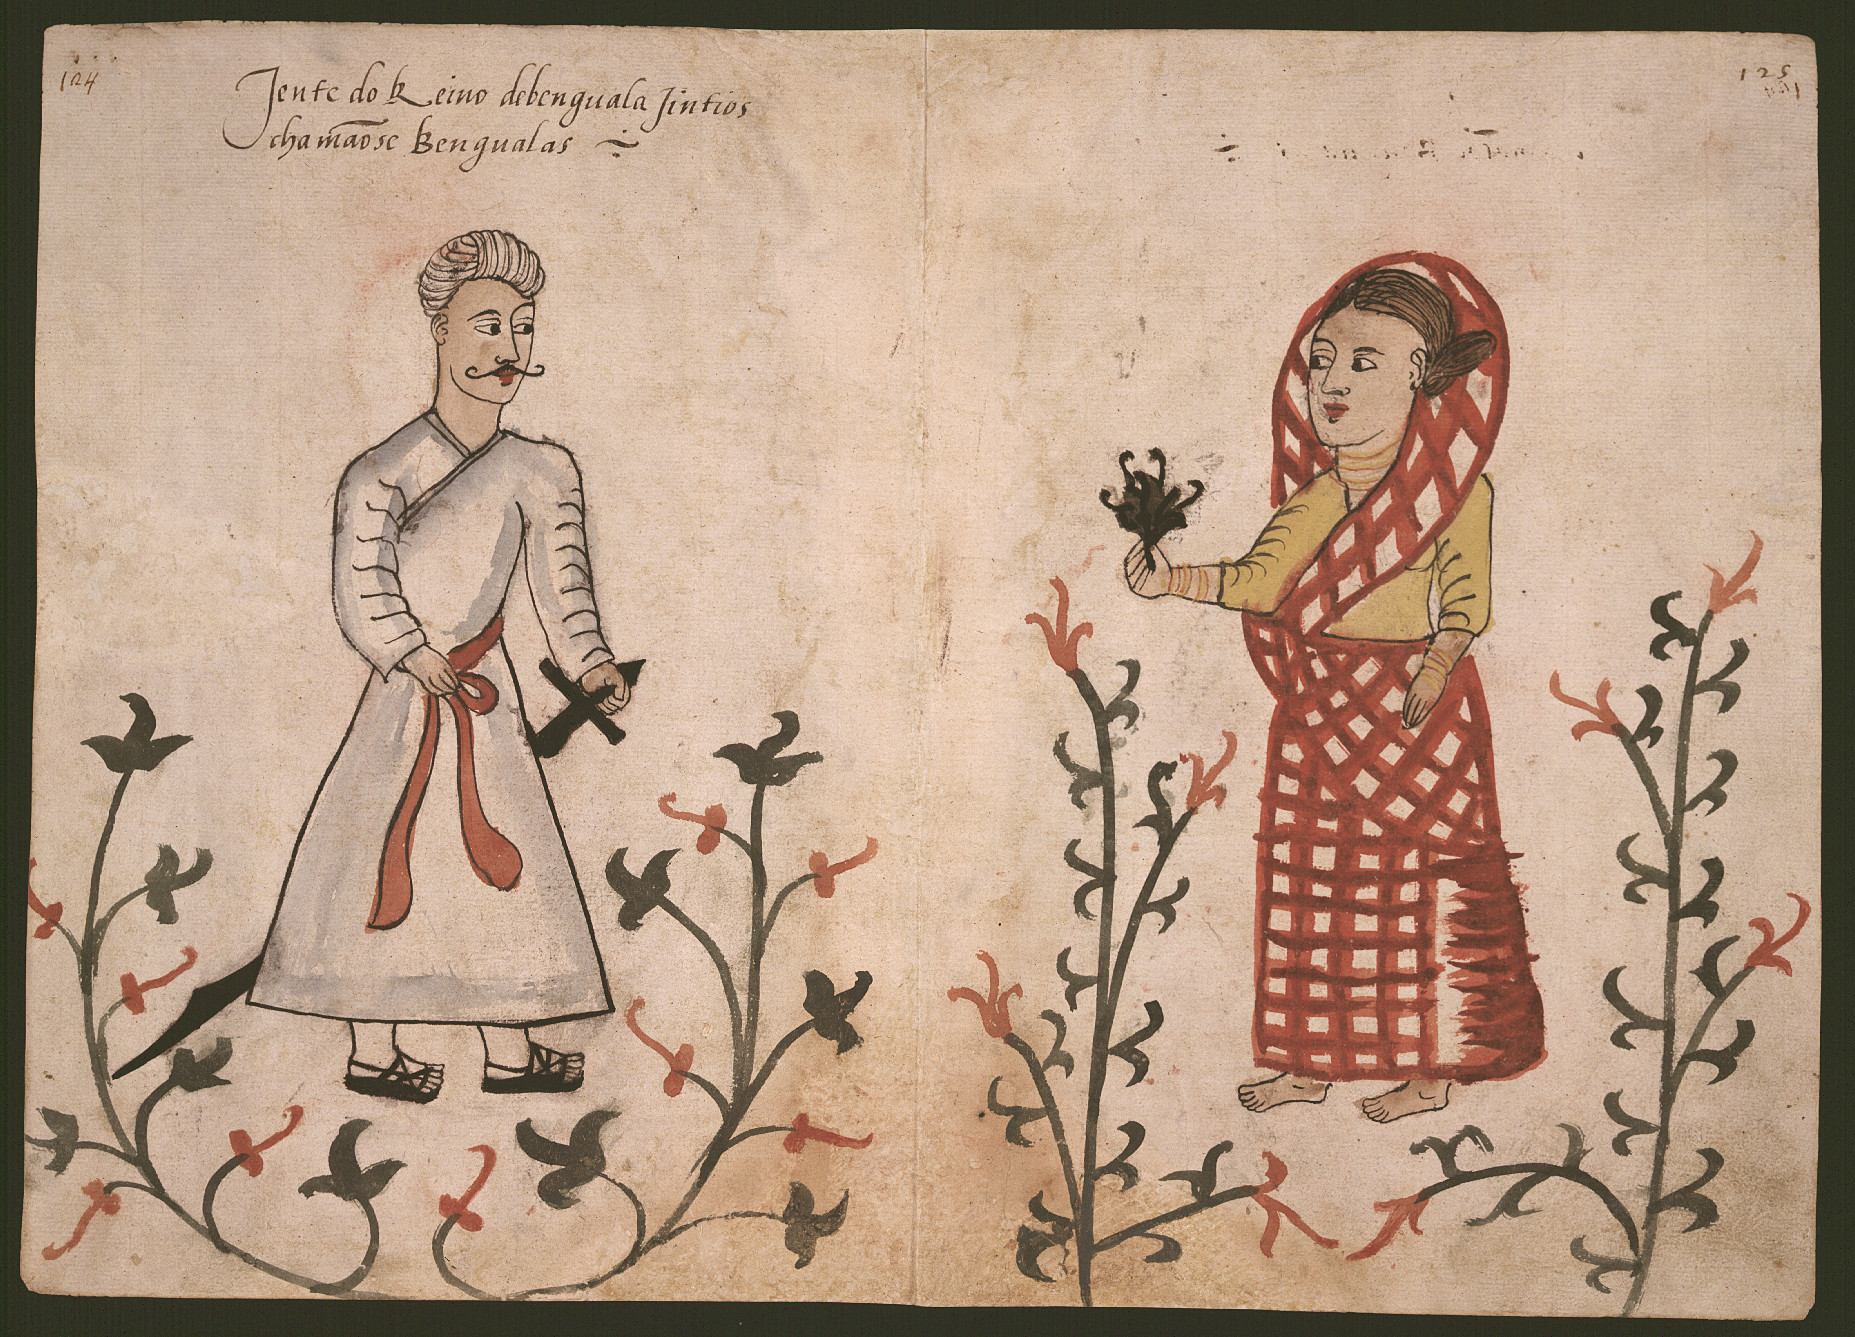 124
125
Jente do Reino debenguala Jintios
chamaõse Bengualas